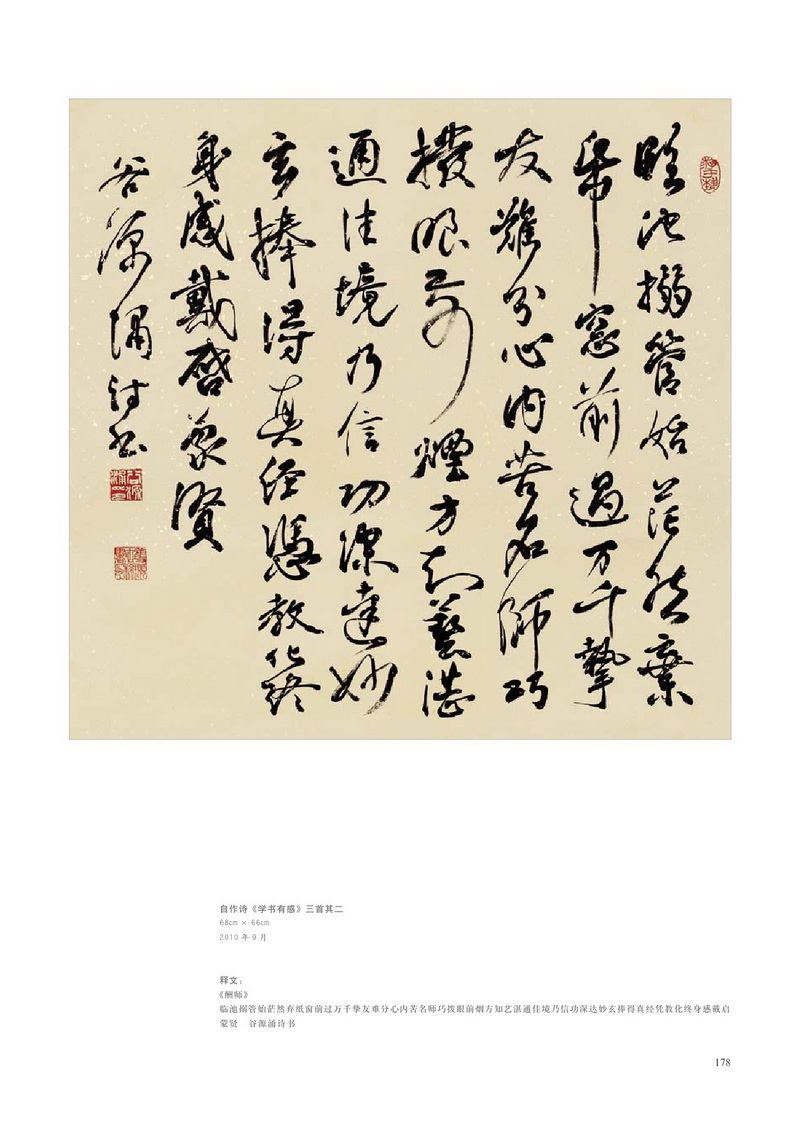 臨池搦管始茫然棄
帋窓前過万千摯
友難分心内苦名師巧
撥眼前煙方知藝湛
通佳境乃信功深達妙
玄捧得真经憑教化终
身感戴啓蒙賢
谷源涌诗书
自作诗《学书有感》三首其二
68cm × 66cm
2010 年 9 月
释文：
《酬师》
临池搦管始茫然弃纸窗前过万千挚友难分心内苦名师巧拨眼前烟方知艺湛通佳境乃信功深达妙玄捧得真经凭教化终身感戴启
蒙贤　谷源涌诗书
178